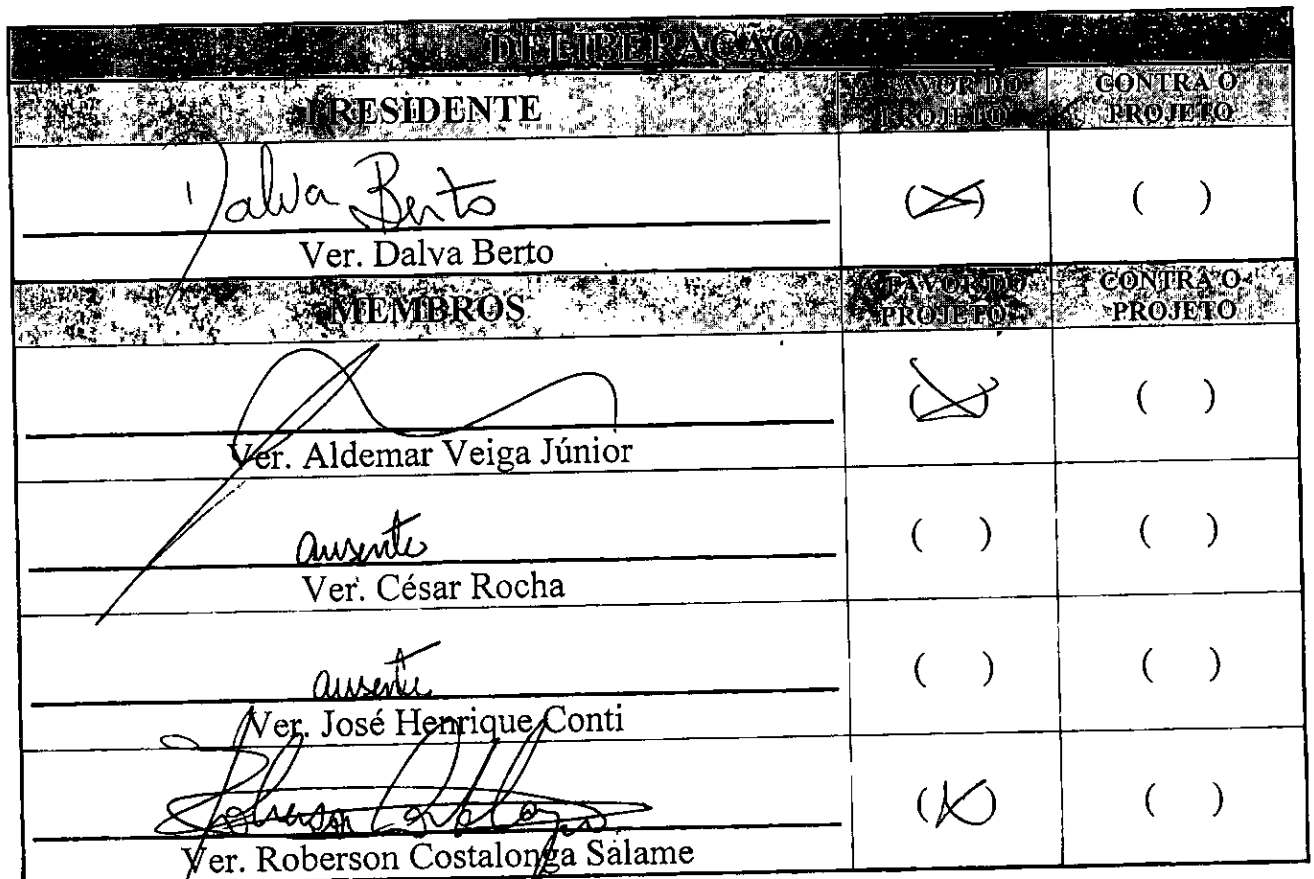 DELIBERAÇÃO
PRESIDENTE
A FAVOR DO PROJETO
CONTRA O PROJETO
Dalva Berto
(X)
( )
Ver. Dalva Berto
MEMBROS
A FAVOR DO PROJETO
CONTRA O PROJETO
(X)
( )
Ver. Aldemar Veiga Júnior
ausente
( )
( )
Ver. César Rocha
ausente
( )
( )
Ver. José Henrique Conti
Roberson Costalonga
(X)
( )
Ver. Roberson Costalonga Salame